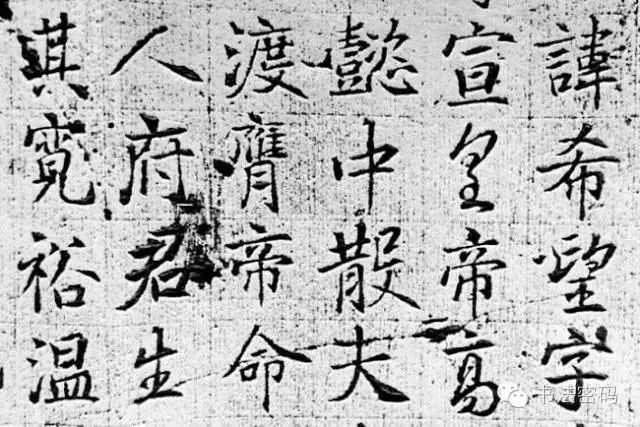 諱希望字
宣皇帝高
懿中散夫
渡膺帝命
人府君生
其寬裕温
书法密码